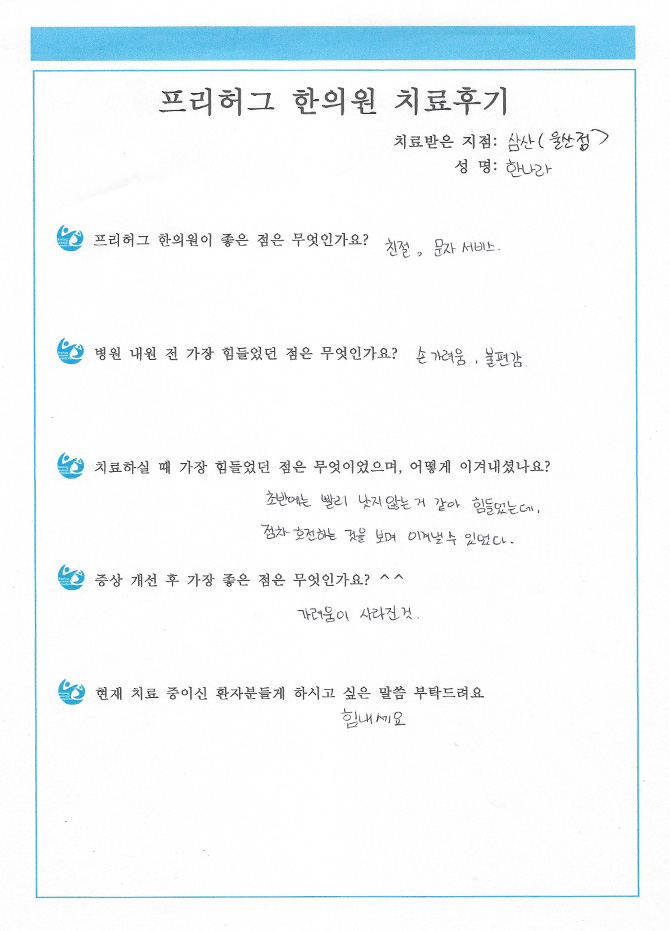 프리허그 한의원 치료후기
치료받은 지점: 삼산(울산점)
성 명: 한나라
프리허그 한의원이 좋은 점은 무엇인가요? 친절, 문자 서비스.
병원 내원 전 가장 힘들었던 점은 무엇인가요? 손 가려움, 불편감
치료하실 때 가장 힘들었던 점은 무엇이었으며, 어떻게 이겨내셨나요?
초반에는 빨리 낫지않는거 같아 힘들었는데,
점차 호전하는 것을 보며 이겨낼수 있었다.
증상 개선 후 가장 좋은 점은 무엇인가요? ^^
가려움이 사라진것.
현재 치료 중이신 환자분들게 하시고 싶은 말씀 부탁드려요
힘내세요